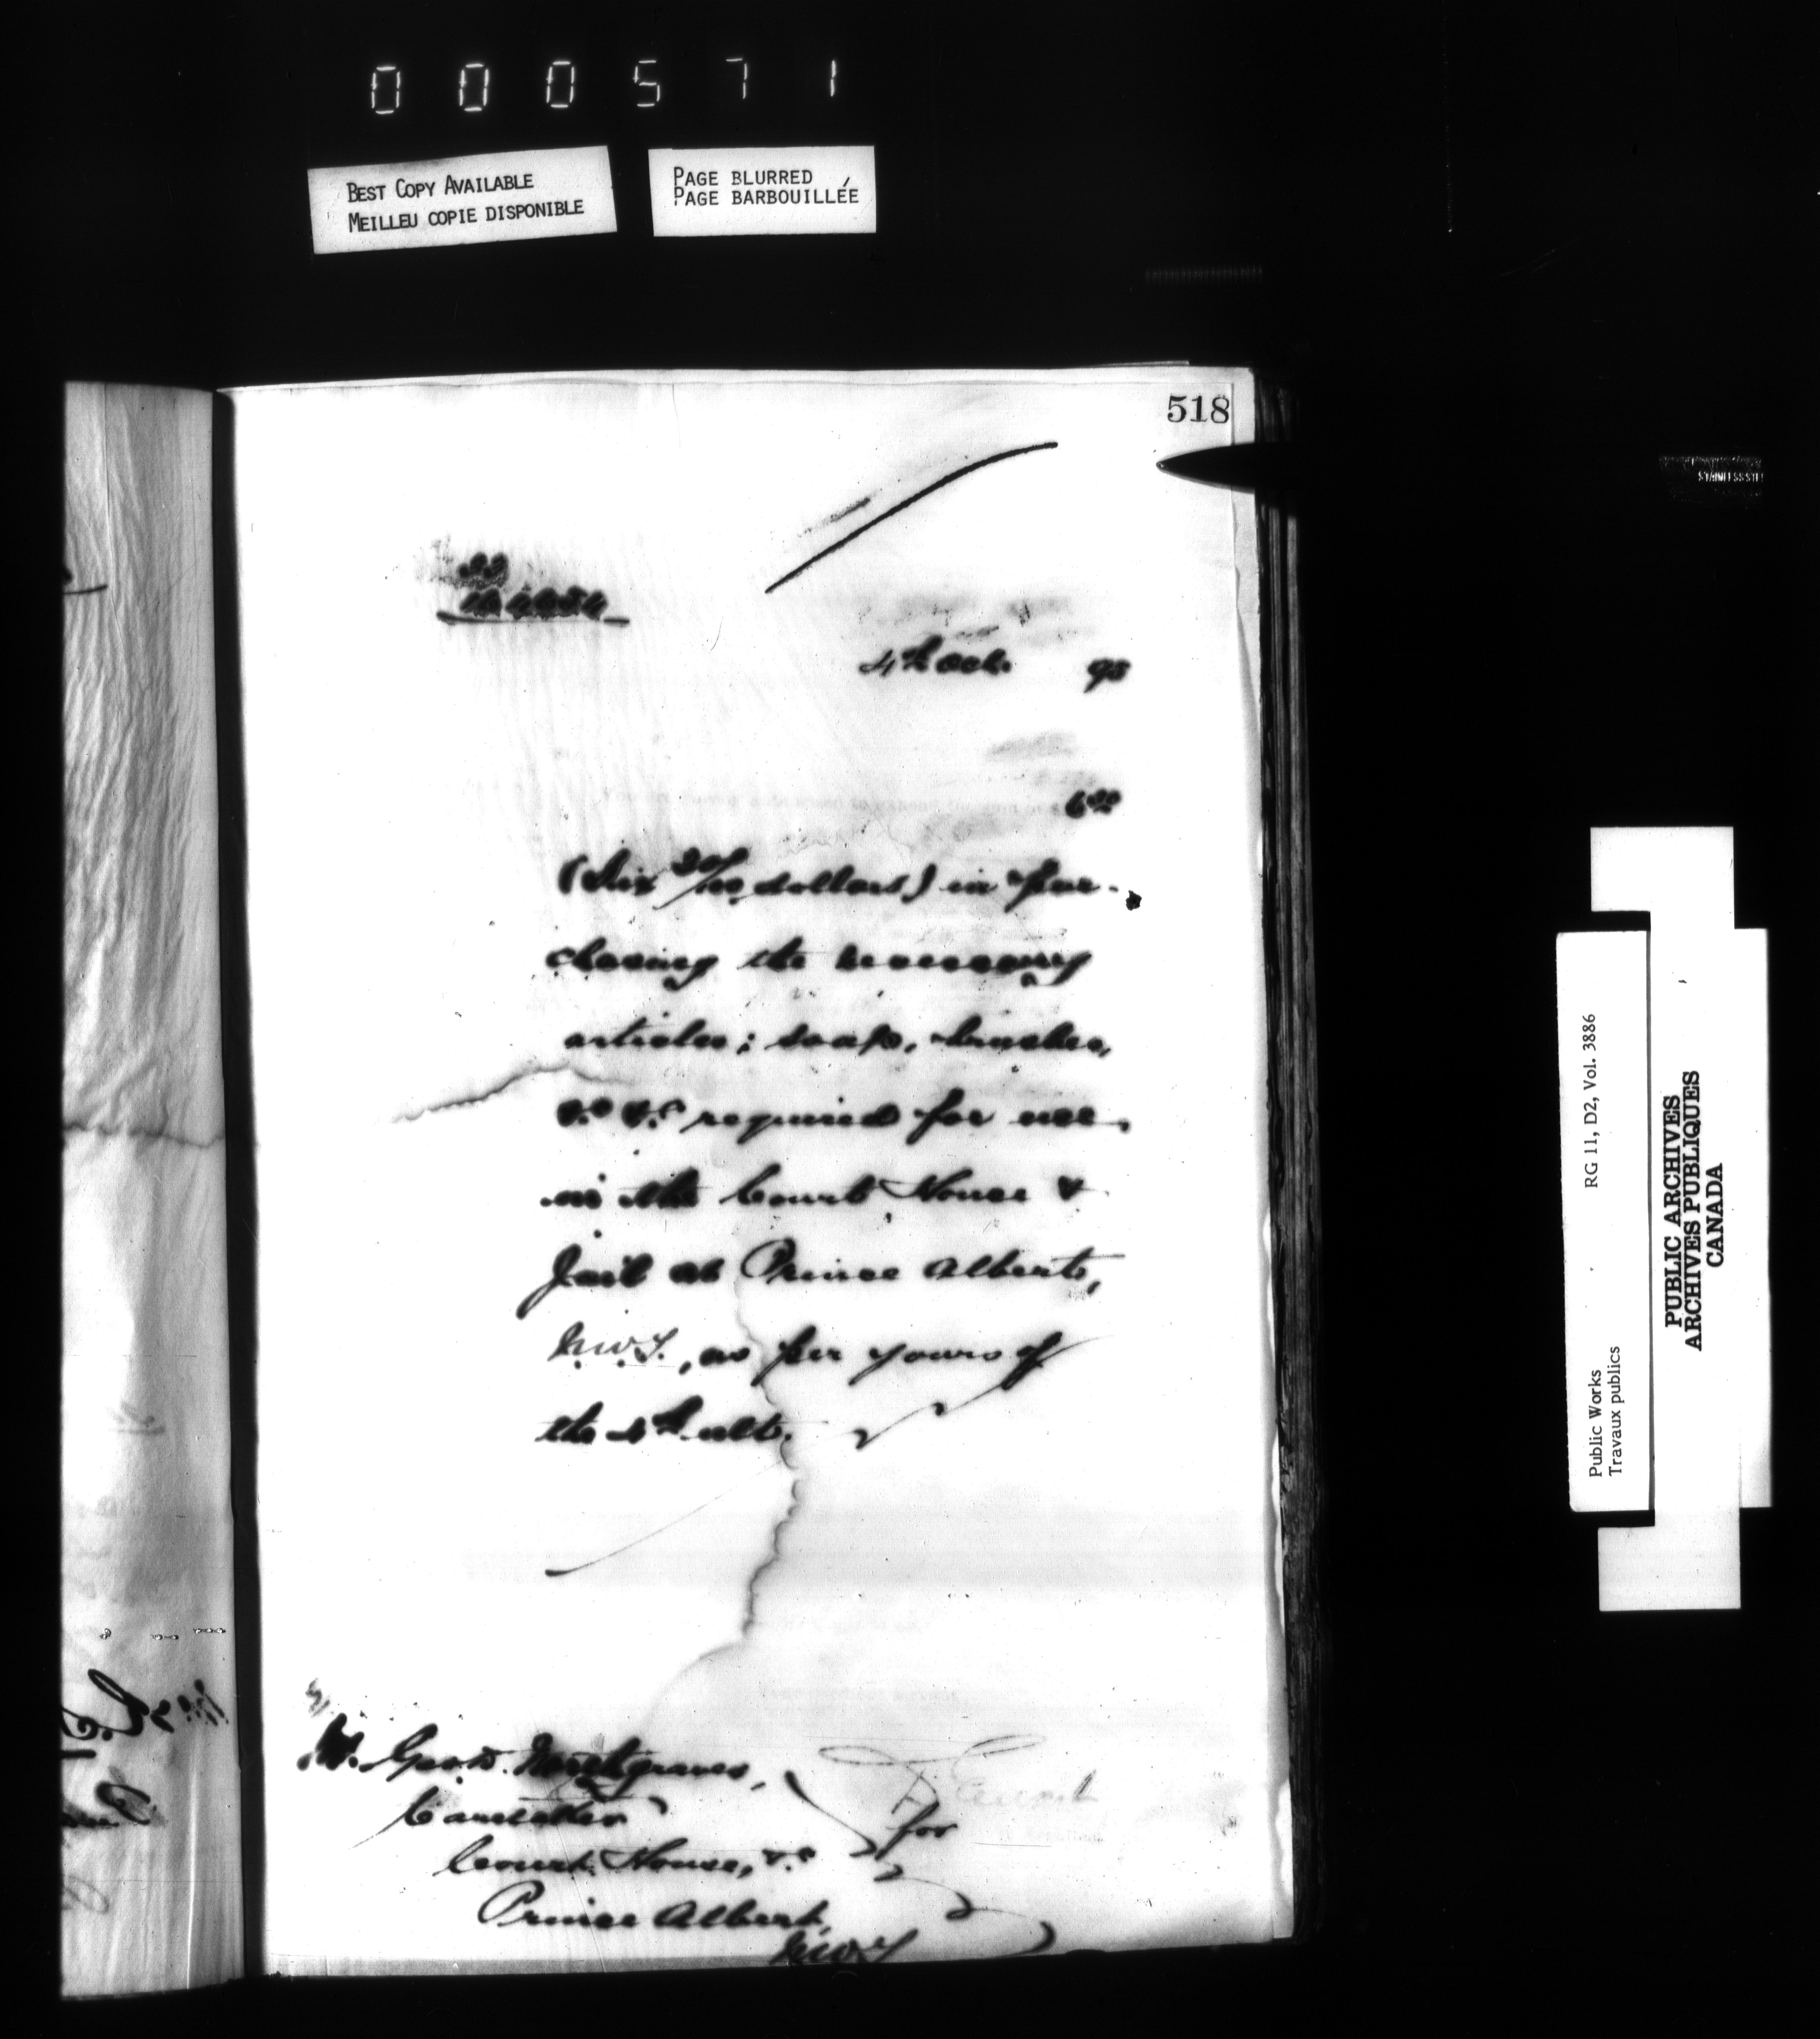 000571
BEST COPY AVAILABLE
MEILLEU COPIE DISPONIBLE
PAGE BLURRED
PAGE BARBOUILLÉE
518
STAINLESS STE
4th Oct. 93
6 30
(Six 30/100 dollars) in pur-
chasing the necessary
articles; soap, brushes,
&c &c required for use
in the Court House &
Jail at Prince Albert,
N.W.T., as per yours of
the 4th ulto.
Mr. Geo. W.
Caretaker
Court House, &c
Prince Albert,
N.W.T
for
RG 11, D2, Vol. 3886
Public Works
Travaux publics
PUBLIC ARCHIVES
ARCHIVES PUBLIQUES
CANADA